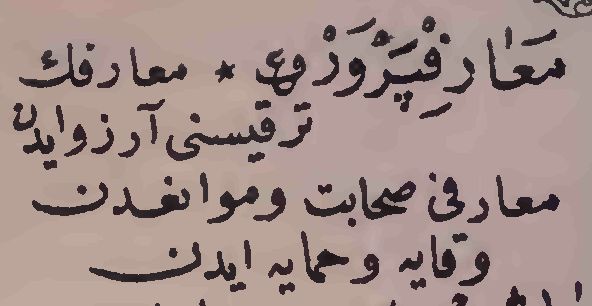 مَعَارِفْپَرْوَرْ * معارفك
ترقيسنى آرزو ايدن
معارفى صحابت وموانعدن
وقايه وحمايه ايدن